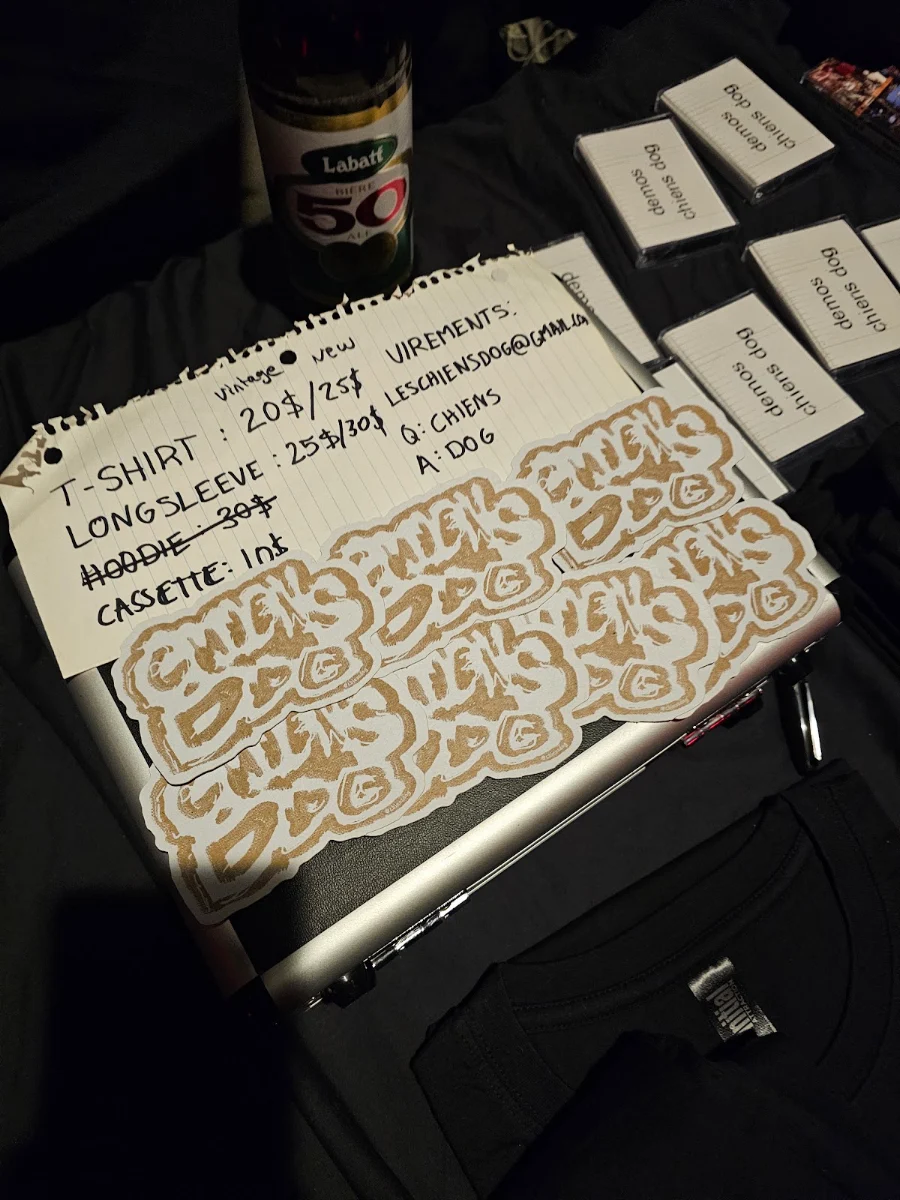 Labatt
BIÈRE
50
ALE
vintage new
T-SHIRT : 20$/25$
LONGSLEEVE : 25$/30$
HOODIE : 30$
CASSETTE: 10$
VIREMENTS:
LESCHIENSDOG@GMAIL.CA
Q: CHIENS
A: DOG
demos
chiens dog
demos
chiens dog
demos
chiens dog
demos
chiens dog
CHIENS
DOG
CHIENS
DOG
CHIENS
DOG
CHIENS
DOG
CHIENS
DOG
CHIENS
DOG
CHIENS
DOG
initial